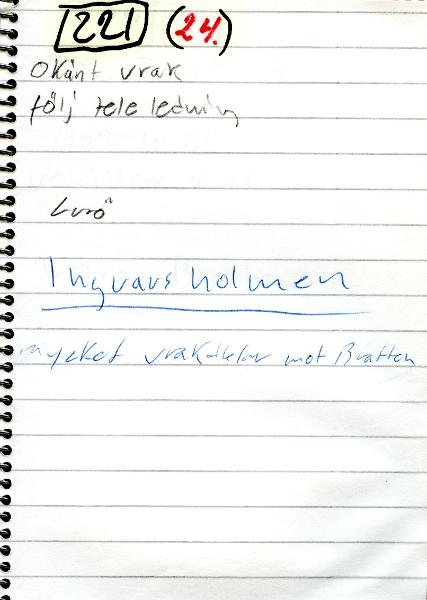 221 (24.)
Okänt vrak
följ tele ledning
Lurö
Ingvarsholmen
mycket vrakdelar mot Bratten